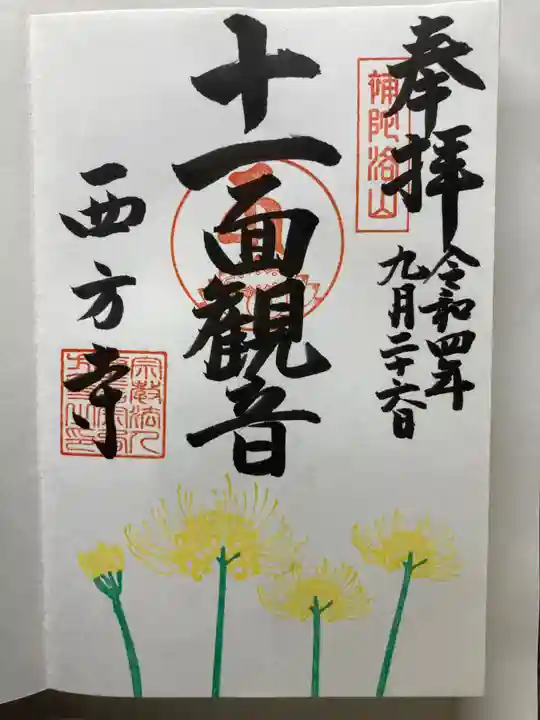 奉拝
補陀洛山
令和四年
九月二十六日
十一面観音
西方寺
宗教法人